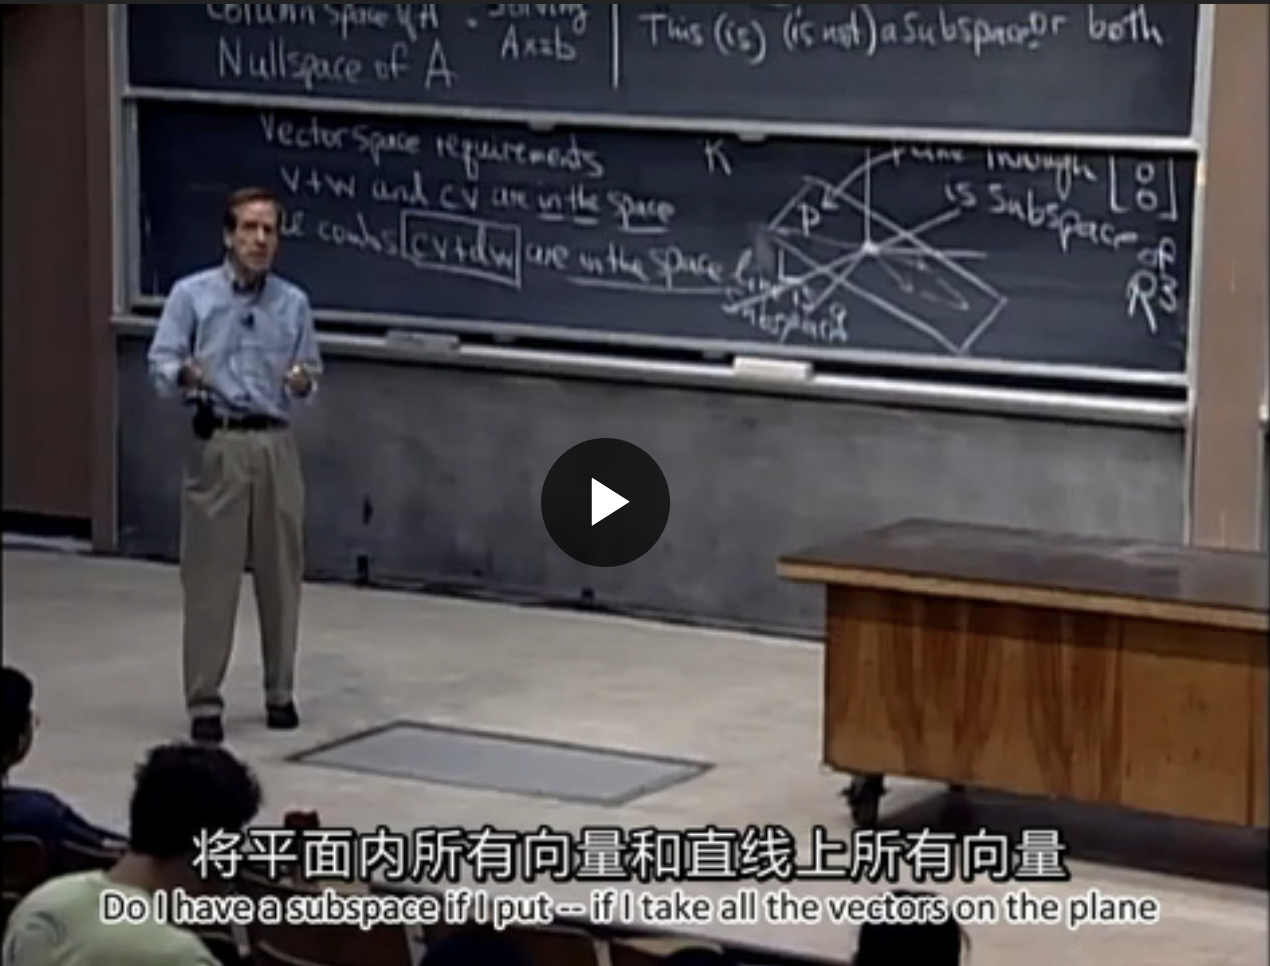 Column space of A
Solving
Ax=b
Nullspace of A
This (is) (is not) a subspace or both
Vector space requirements
v+w and cv are in the space
combs cv+dw are in the space
K
through
0
0
is subspace of
R3
P
L
line is
a
subspace
将平面内所有向量和直线上所有向量
Do I have a subspace if I put -- if I take all the vectors on the plane